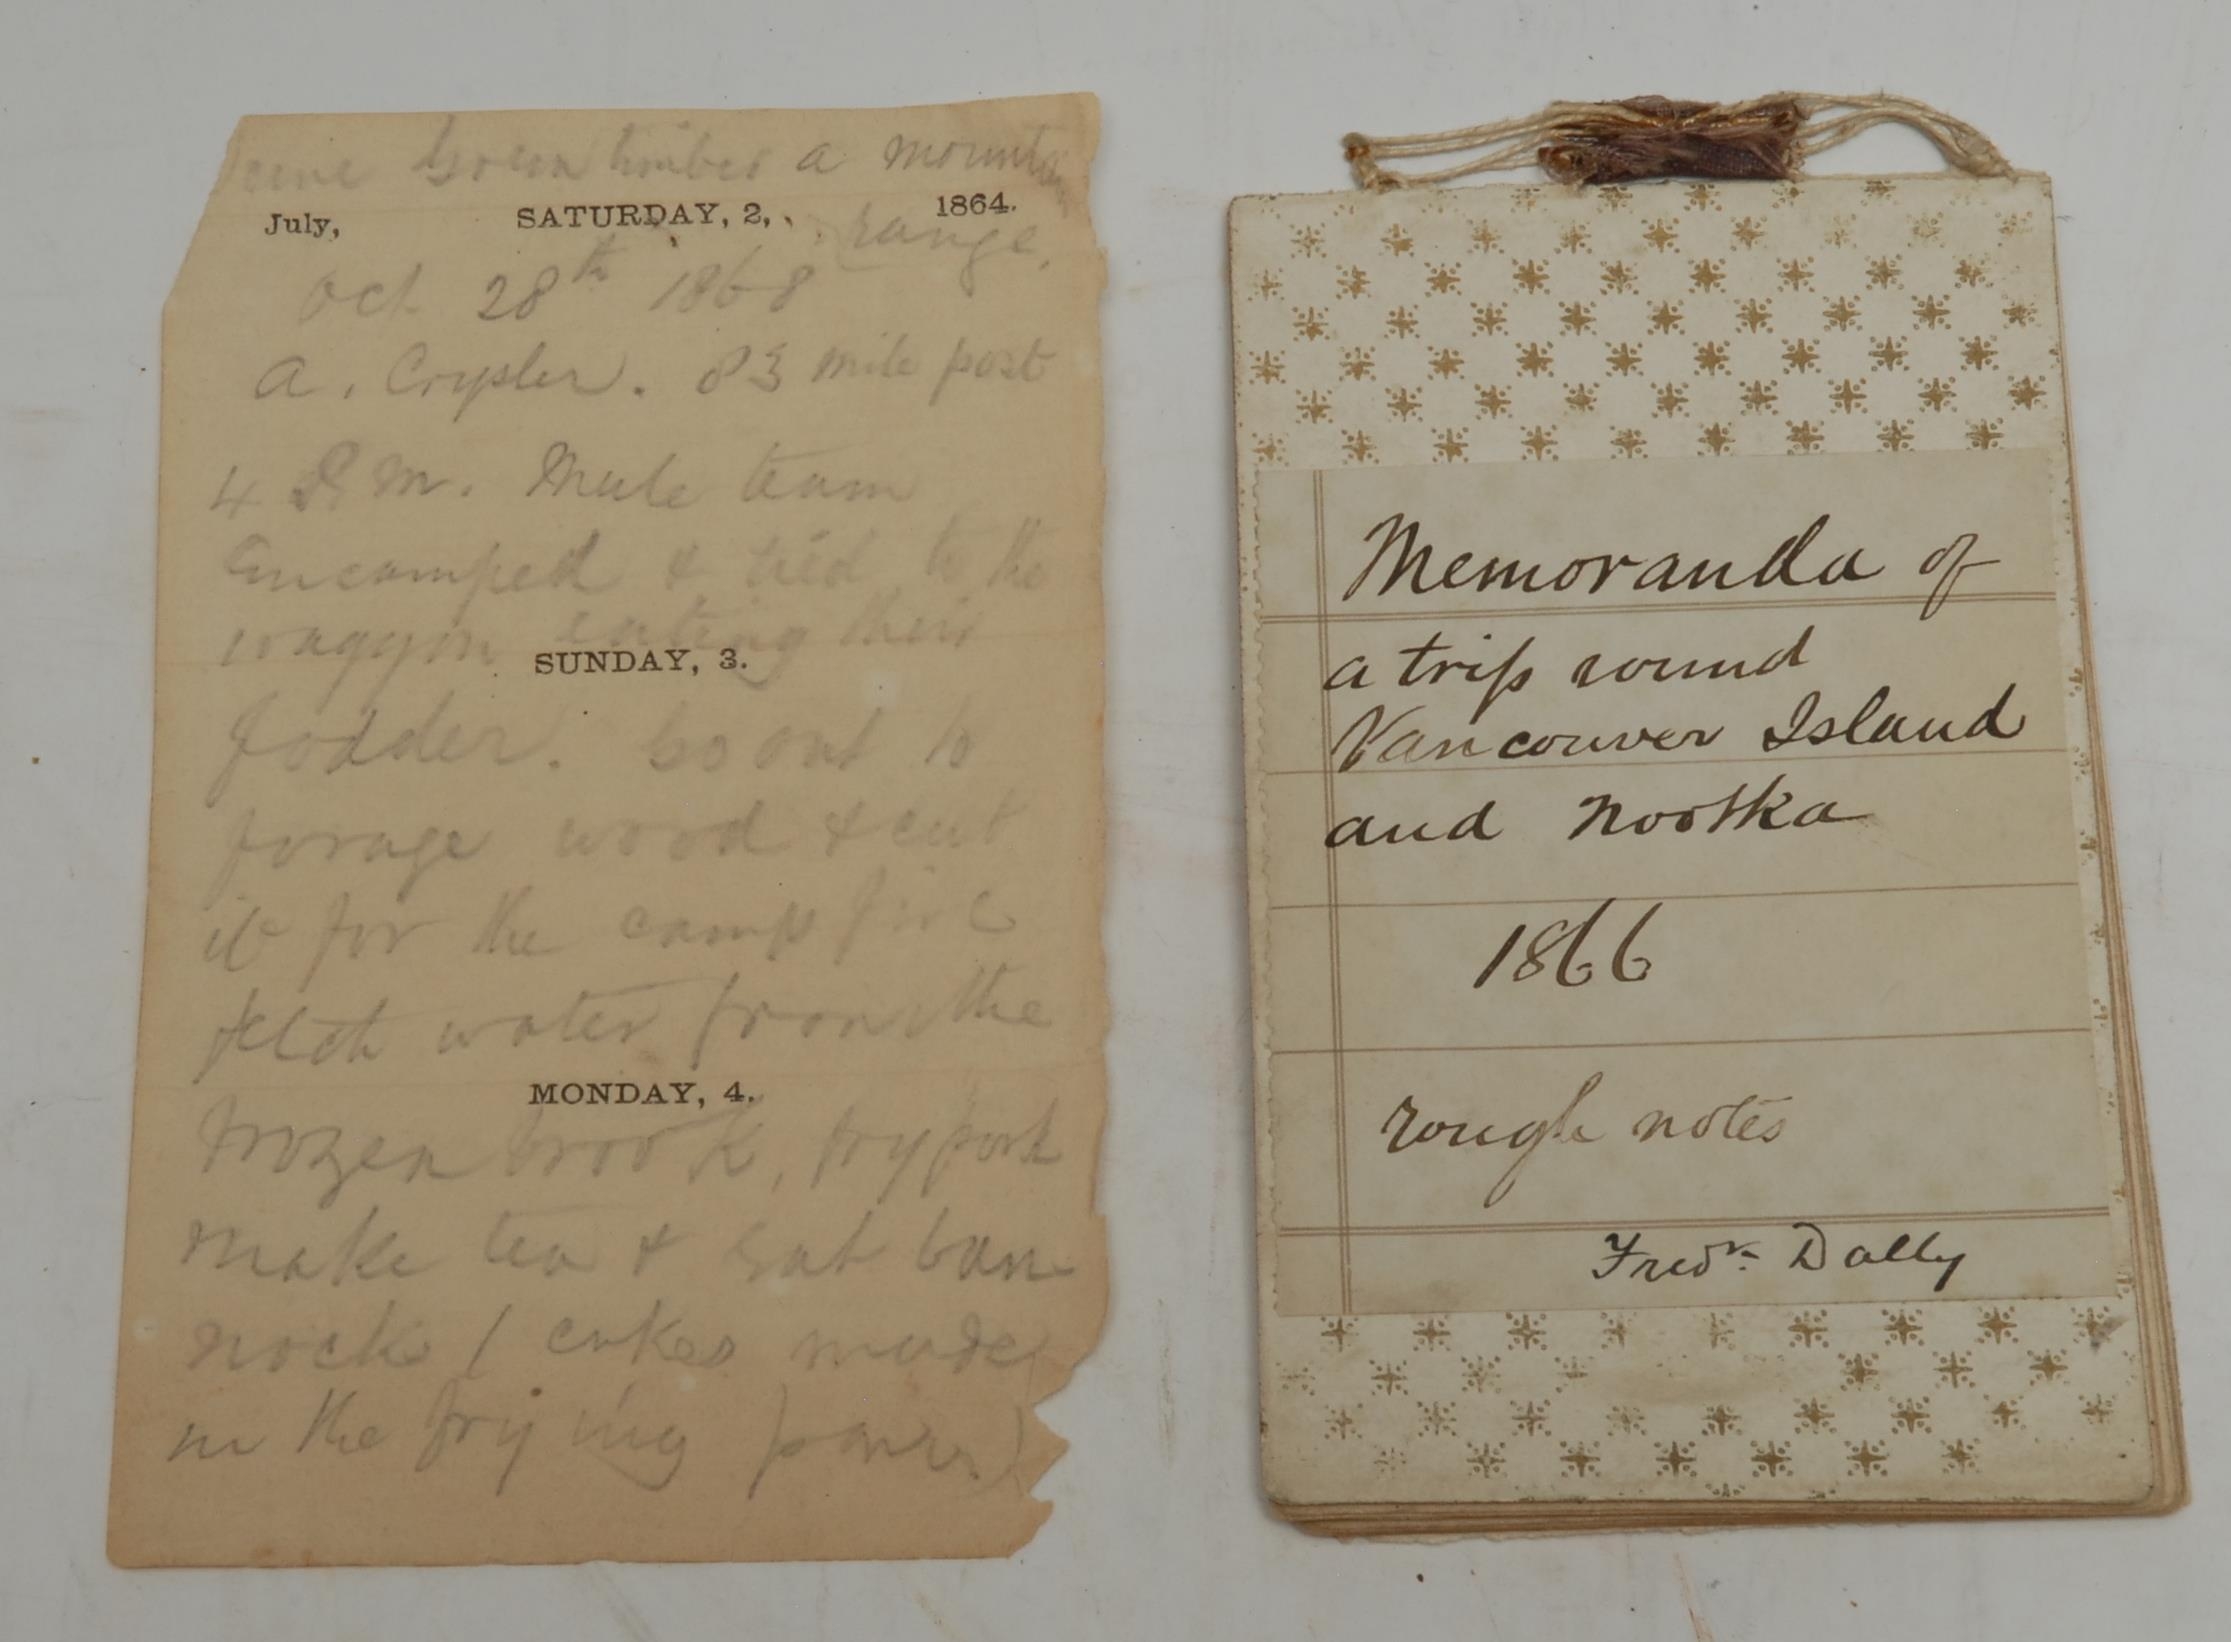 Green timber a mountain
July, SATURDAY, 2, 1864.
range.
Oct. 28th 1868
A. Crysler. 83 mile post
4 P.M. Mule team
Encamped & tied to the
waggon eating their
SUNDAY, 3.
fodder. Go out to
forage wood & cut
it for the camp fire
fetch water from the
MONDAY, 4.
frozen brook, fry pork
make tea & eat ban
nock (cakes made
in the frying pan)
Memoranda of
a trip round
Vancouver Island
and Nootka
1866
rough notes
Fredk. Dally